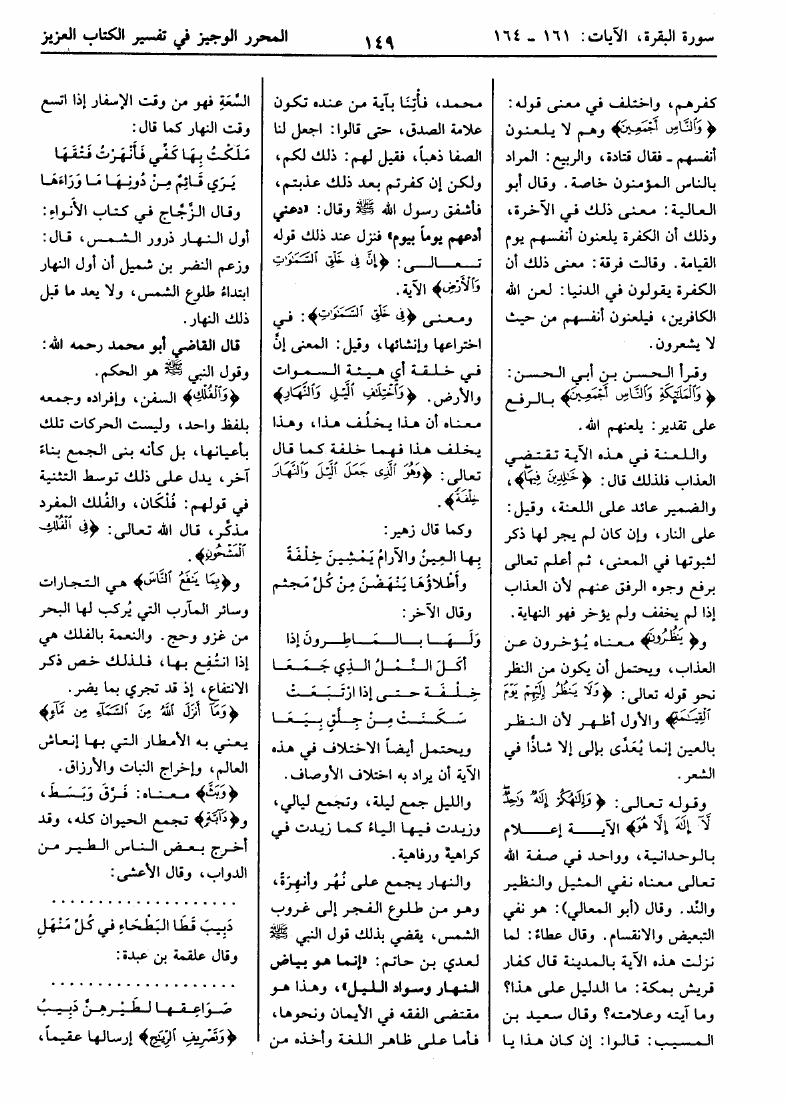 سورة البقرة، الآيات: ١٦١ - ١٦٤
١٤٩
المحرر الوجيز في تفسير الكتاب العزيز
كفرهم، واختلف في معنى قوله:
﴿وَالنَّاسِ أَجْمَعِينَ﴾ وهم لا يلعنون
أنفسهم - فقال قتادة، والربيع: المراد
بالناس المؤمنون خاصة. وقال أبو
العالية: معنى ذلك في الآخرة،
وذلك أن الكفرة يلعنون أنفسهم يوم
القيامة. وقالت فرقة: معنى ذلك أن
الكفرة يقولون في الدنيا: لعن الله
الكافرين، فيلعنون أنفسهم من حيث
لا يشعرون.
وقرأ الحسن بن أبي الحسن:
﴿وَالْمَلَائِكَةُ وَالنَّاسُ أَجْمَعِينَ﴾ بالرفع
على تقدير: يلعنهم الله.
واللعنة في هذه الآية تقتضي
العذاب فلذلك قال: ﴿خَالِدِينَ فِيهَا﴾،
والضمير عائد على اللعنة، وقيل:
على النار، وإن كان لم يجر لها ذكر
لثبوتها في المعنى، ثم أعلم تعالى
برفع وجوه الرفق عنهم لأن العذاب
إذا لم يخفف ولم يؤخر فهو النهاية.
و﴿يُنظَرُونَ﴾ معناه يُؤخرون عن
العذاب، ويحتمل أن يكون من النظر
نحو قوله تعالى: ﴿وَلَا يَنظُرُ إِلَيْهِمْ يَوْمَ
الْقِيَامَةِ﴾ والأول أظهر لأن النظر
بالعين إنما يُعَدَّى بإلى إلا شاذًا في
الشعر.
وقوله تعالى: ﴿وَإِلَٰهُكُمْ إِلَٰهٌ وَاحِدٌ
لَّا إِلَٰهَ إِلَّا هُوَ﴾ الآية إعلام
بالوحدانية، وواحد في صفة الله
تعالى معناه نفي المثيل والنظير
والنِّد. وقال (أبو المعالي): هو نفي
التبعيض والانقسام. وقال عطاء: لما
نزلت هذه الآية بالمدينة قال كفار
قريش بمكة: ما الدليل على هذا؟
وما آيته وعلامته؟ وقال سعيد بن
المسيب: قالوا: إن كان هذا يا
محمد، فأْتِنَا بآية من عنده تكون
علامة الصدق، حتى قالوا: اجعل لنا
الصفا ذهباً، فقيل لهم: ذلك لكم،
ولكن إن كفرتم بعد ذلك عذبتم،
فأشفق رسول الله ﷺ وقال: «دعني
أدعهم يوماً بيوم» فنزل عند ذلك قوله
تعالى: ﴿إِنَّ فِي خَلْقِ السَّمَاوَاتِ
وَالْأَرْضِ﴾ الآية.
ومعنى ﴿فِي خَلْقِ السَّمَاوَاتِ﴾: في
اختراعها وإنشائها، وقيل: المعنى إنَّ
في خلقة أي هيئة السموات
والأرض. ﴿وَاخْتِلَافِ اللَّيْلِ وَالنَّهَارِ﴾
معناه أن هذا يخلُف هذا، وهذا
يخلف هذا فهما خلفة كما قال
تعالى: ﴿وَهُوَ الَّذِي جَعَلَ اللَّيْلَ وَالنَّهَارَ
خِلْفَةً﴾.
وكما قال زهير:
بِهَا العِينُ والآرامُ يَمْشِينَ خِلْفَةً
وأَطْلاَؤُهَا يَنْهَضْنَ مِنْ كُلِّ مَجْثَمِ
وقال الآخر:
وَلَهَا بِالمَاطِرُونَ إذا
أكَلَ النَّمْلُ الذي جَمَعَا
خِلْفَةً حتى إذا ارْتَبَعَتْ
سَكَنَتْ مِنْ جِلَّقٍ بِيَعَا
ويحتمل أيضاً الاختلاف في هذه
الآية أن يراد به اختلاف الأوصاف.
والليل جمع ليلة، وتجمع ليالي،
وزيدت فيها الياء كما زيدت في
كراهية ورفاهية.
والنهار يجمع على نُهُر وأنهِرَة،
وهو من طلوع الفجر إلى غروب
الشمس، يقضي بذلك قول النبي ﷺ
لعدي بن حاتم: «إنما هو بياض
النهار وسواد الليل»، وهذا هو
مقتضى الفقه في الأيمان ونحوها،
فأما على ظاهر اللغة وأخذه من
السَّعَةِ فهو من وقت الإسفار إذا اتسع
وقت النهار كما قال:
مَلَكْتُ بِهَا كَفِّي فَأَنْهَرْتُ فَتْقَهَا
يَرَى قَائِمٌ مِنْ دُونِهَا مَا وَرَاءَهَا
وقال الزَّجَّاج في كتاب الأنواء:
أول النهار ذرور الشمس، قال:
وزعم النضر بن شميل أن أول النهار
ابتداءُ طلوع الشمس، ولا يعد ما قبل
ذلك النهار.
قال القاضي أبو محمد رحمه الله:
وقول النبي ﷺ هو الحكم.
﴿وَالْفُلْكِ﴾ السفن، وإفراده وجمعه
بلفظ واحد، وليست الحركات تلك
بأعيانها، بل كأنه بنى الجمع بناءً
آخر، يدل على ذلك توسط التثنية
في قولهم: فُلْكَان، والفُلك المفرد
مذكّر، قال الله تعالى: ﴿فِي الْفُلْكِ
الْمَشْحُونِ﴾.
و﴿بِمَا يَنفَعُ النَّاسَ﴾ هي التجارات
وسائر المآرب التي يُركب لها البحر
من غزو وحج. والنعمة بالفلك هي
إذا انتُفِع بها، فلذلك خص ذكر
الانتفاع، إذ قد تجري بما يضر.
﴿وَمَا أَنزَلَ اللَّهُ مِنَ السَّمَاءِ مِن مَّاءٍ﴾
يعني به الأمطار التي بها إنعاش
العالم، وإخراج النبات والأرزاق.
﴿وَبَثَّ﴾ معناه: فَرَّقَ وَبَسَطَ،
و﴿دَابَّةٍ﴾ تجمع الحيوان كله، وقد
أخرج بعض الناس الطير من
الدواب، وقال الأعشى:
. . . . . . . . . . . . . . . . . .
دَبِيبَ قَطَا البَطْحَاءِ في كُلِّ مَنْهَلِ
وقال علقمة بن عبدة:
. . . . . . . . . . . . . . . . . .
صَوَاعِقُهَا لطَيْرِهِنَّ دَبِيبُ
﴿وَتَصْرِيفِ الرِّيَاحِ﴾ إرسالها عقيماً،